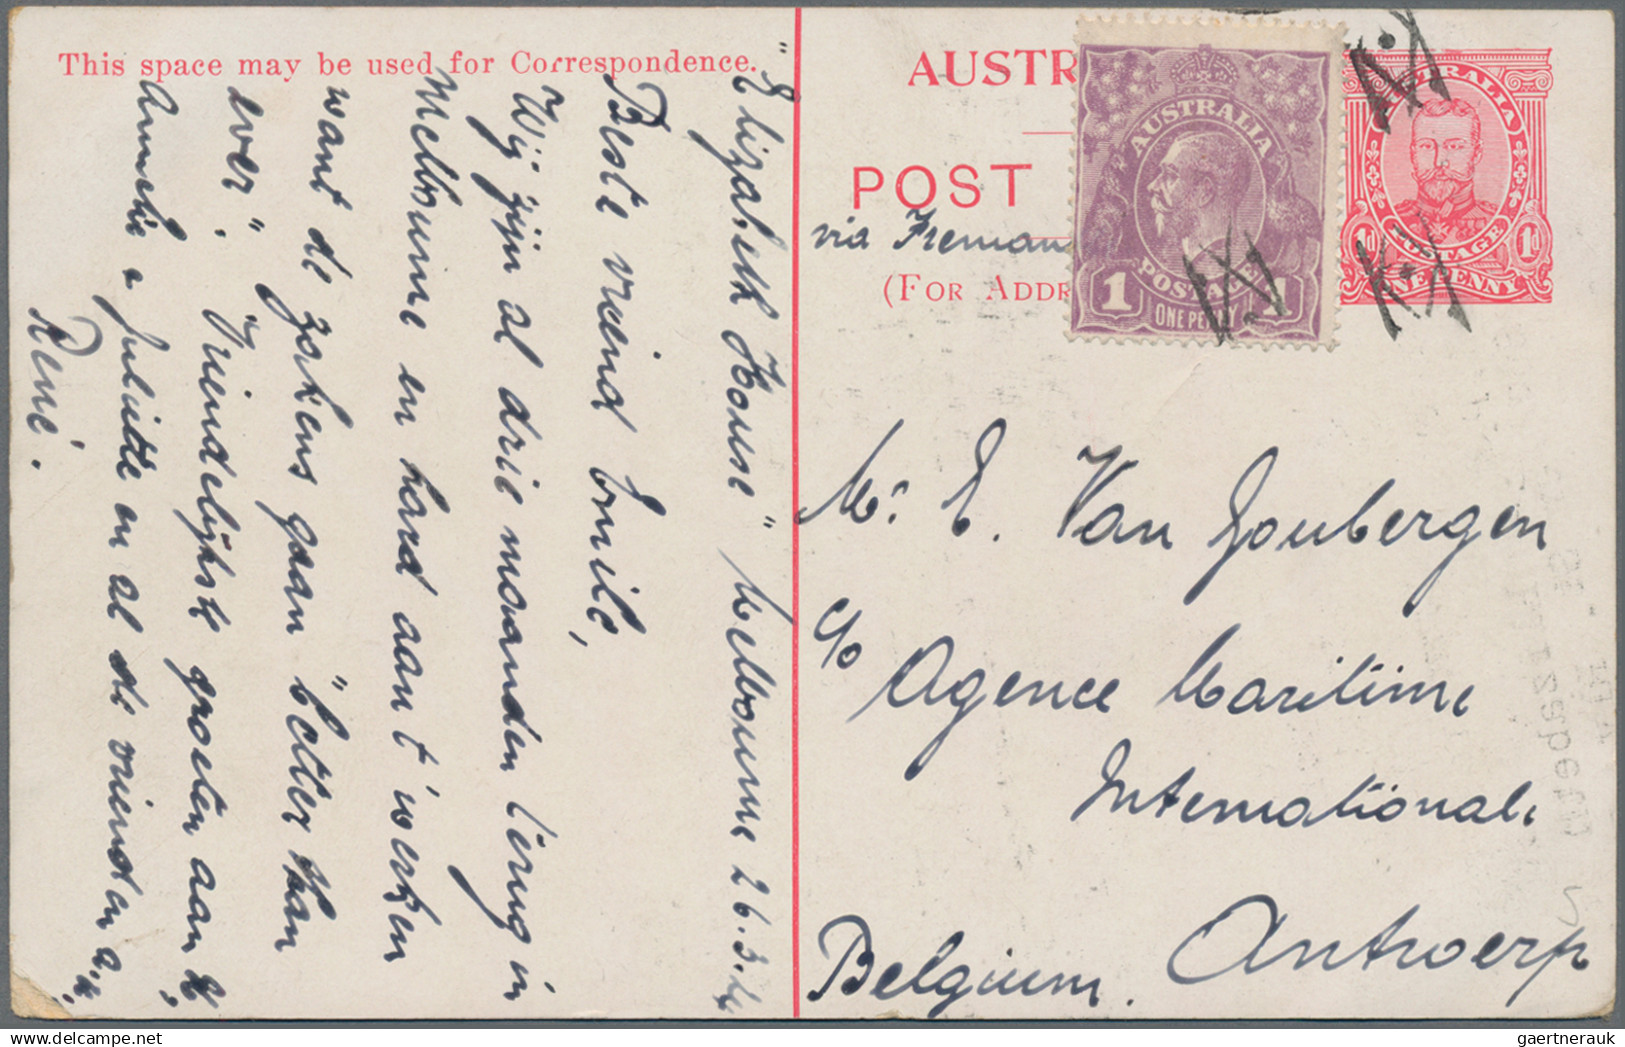 This space may be used for Correspondence.
"Elizabeth House" Melbourne 26.3.24
Beste vriend Emile,
Wij zijn al drie maanden terug in
Melbourne en hard aan t'werken
want de zakens gaan "better than
ever". Vriendelijke groeten aan
& Juliette en al de vrienden a.
René.
AUSTR
POST
via Freman
(FOR ADDR
AUSTRALIA
POSTAGE
1 ONE PENNY 1
AUSTRALIA
POSTAGE
1d 1d
ONE PENNY
Mr. E. Van Goubergen
c/o Agence Maritime
Internationale
Antwerp
Belgium.
gaertnerauk